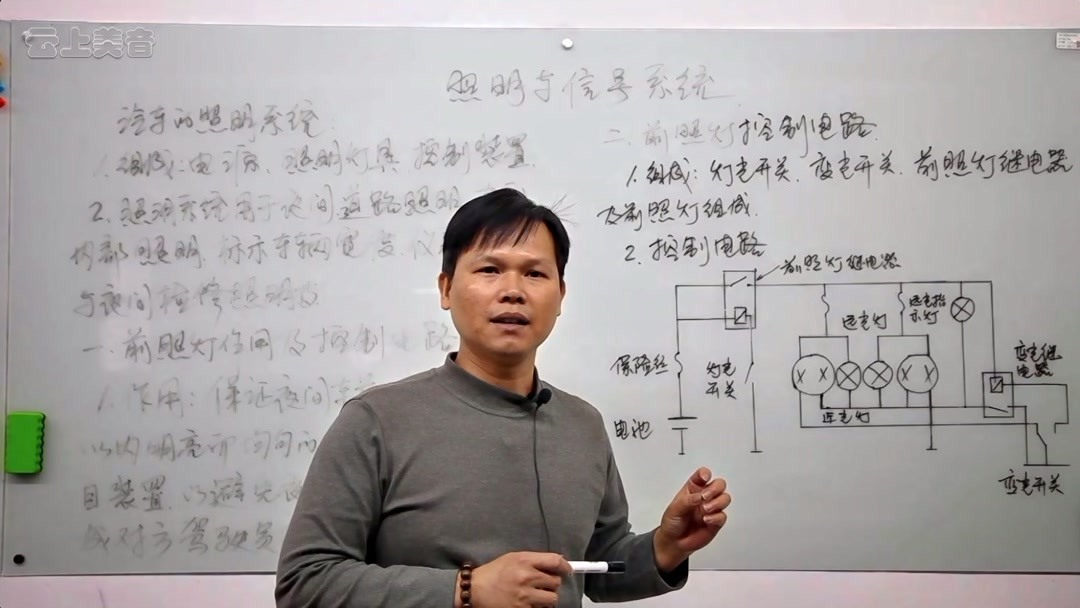 云上美音
照明与信号系统
汽车的照明系统
1.组成:电源、照明灯具、控制装置
2.照明系统用于夜间道路照明
内部照明、标示车辆宽度、仪
与夜间检修照明
一、前照灯作用及控制电路
1.作用:保证夜间
以内明亮而均匀的
目装置,以避免
成对方驾驶员
二、前照灯控制电路
1.组成:灯光开关、变光开关、前照灯继电器
及前照灯组成.
2.控制电路
前照灯继电器
远光灯
远光指
示灯
保险丝
灯光
开关
变光继
电器
近光灯
电池
变光开关